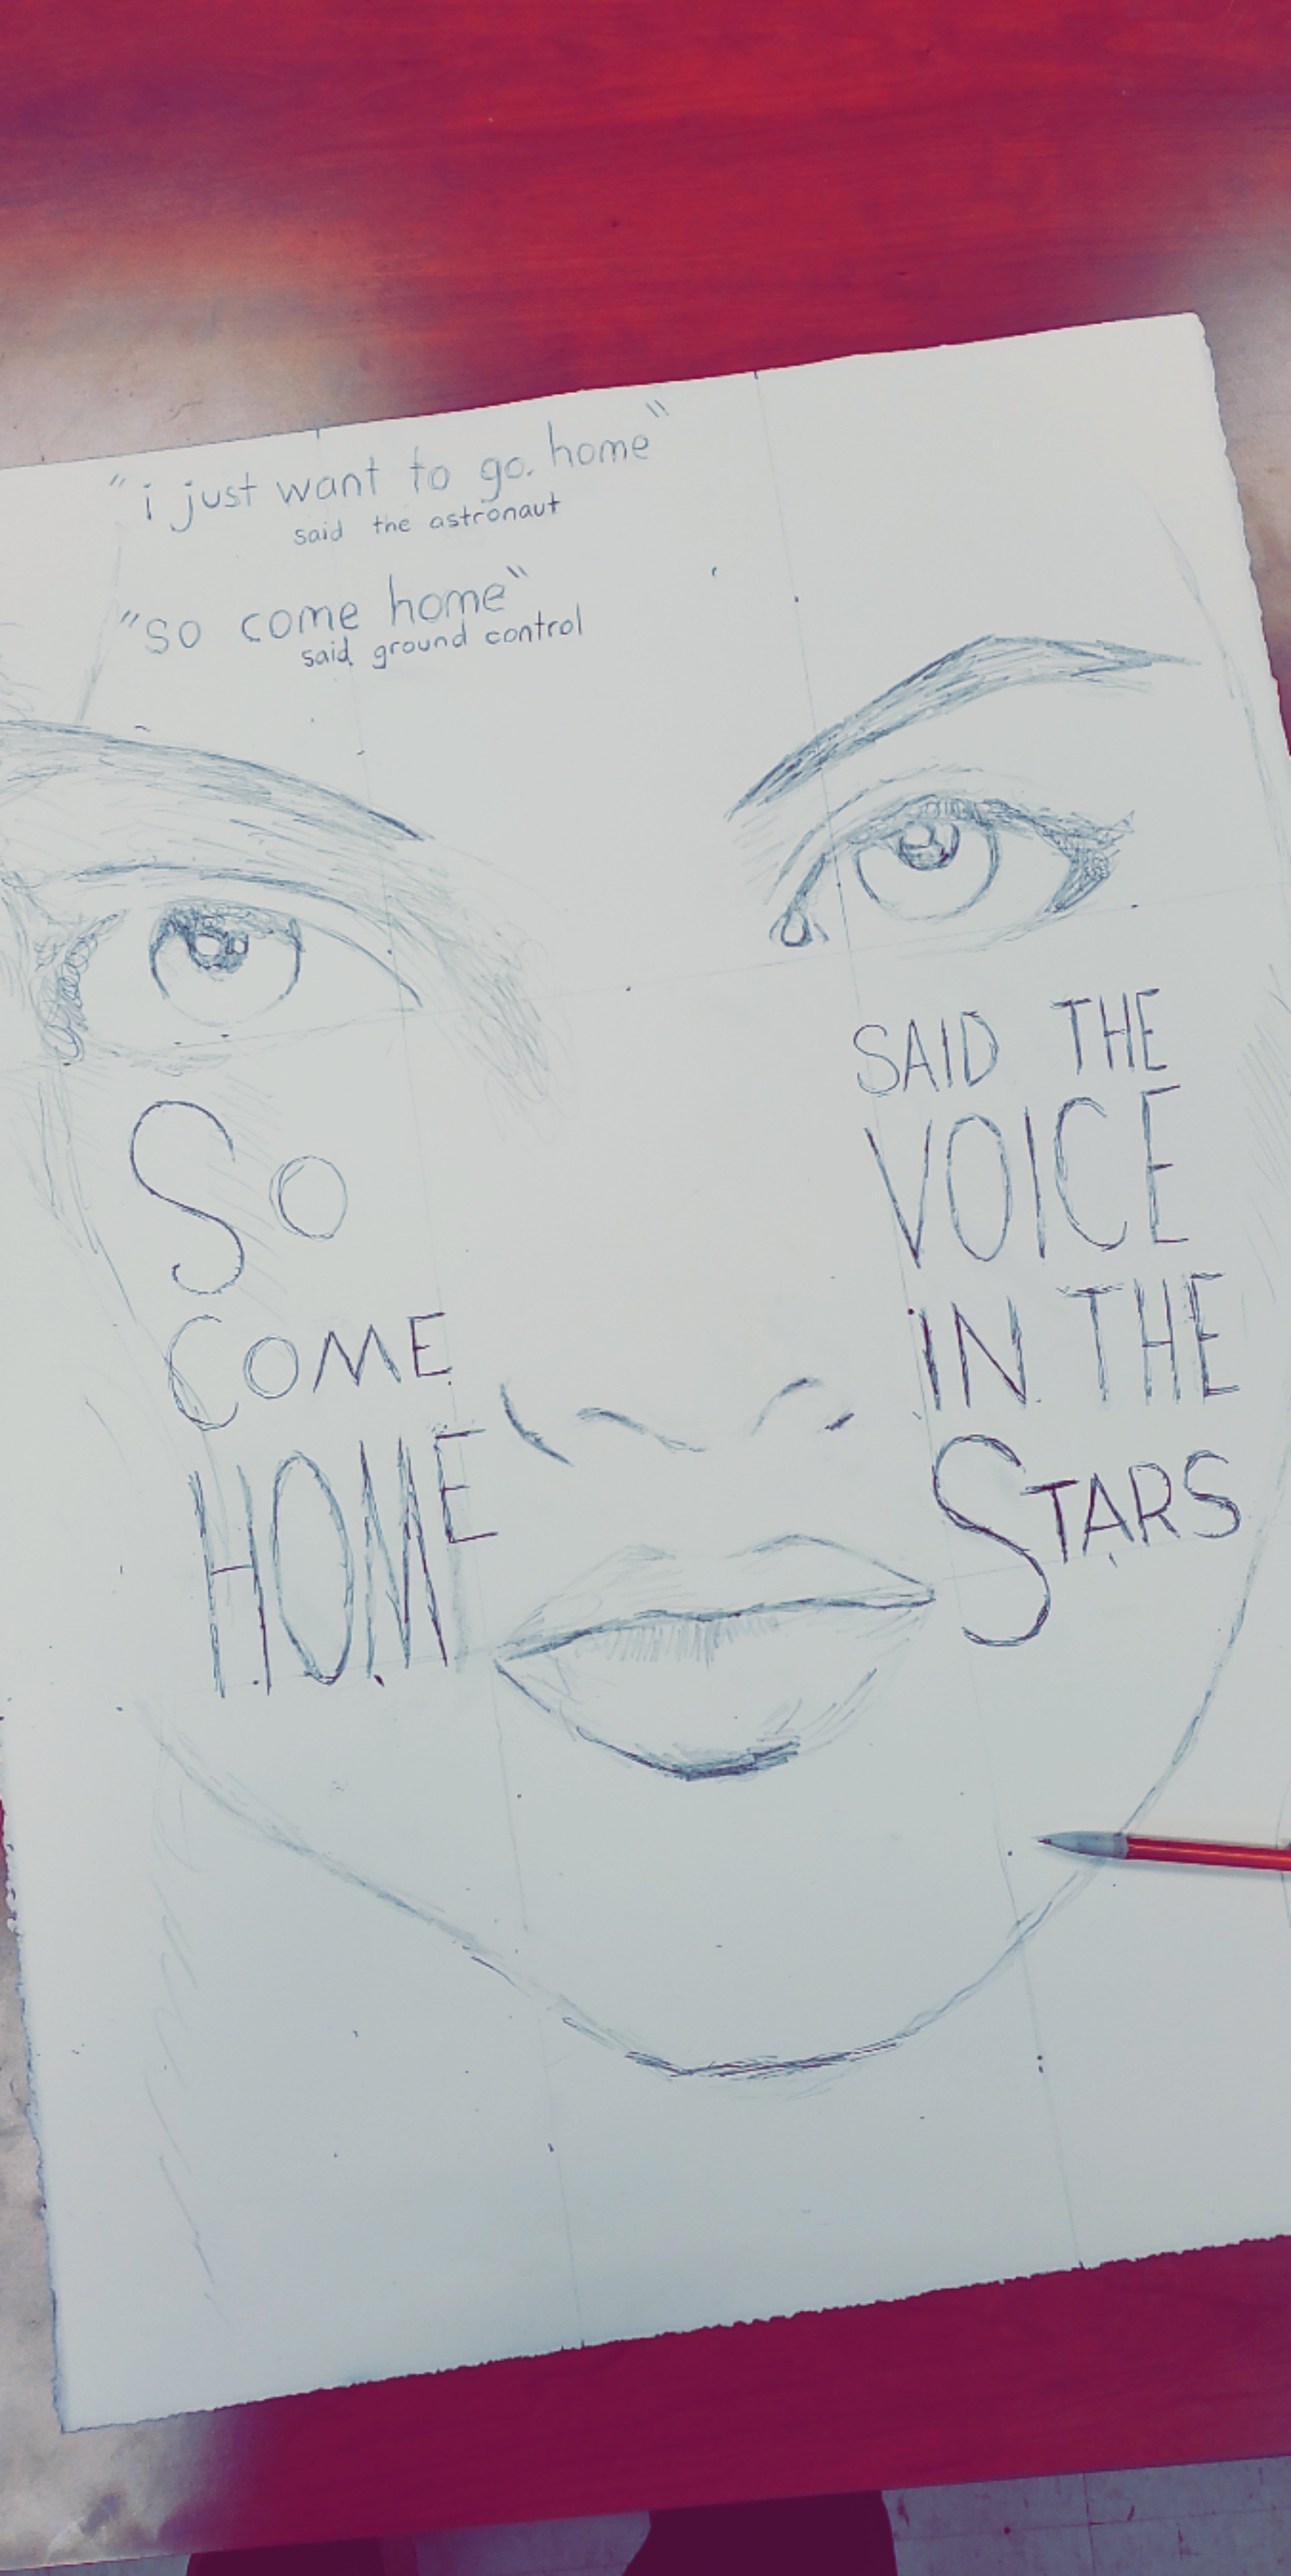 "i just want to go. home"
said the astronaut
"so come home"
said ground control
So
COME
HOME
SAID THE
VOICE
IN THE
STARS